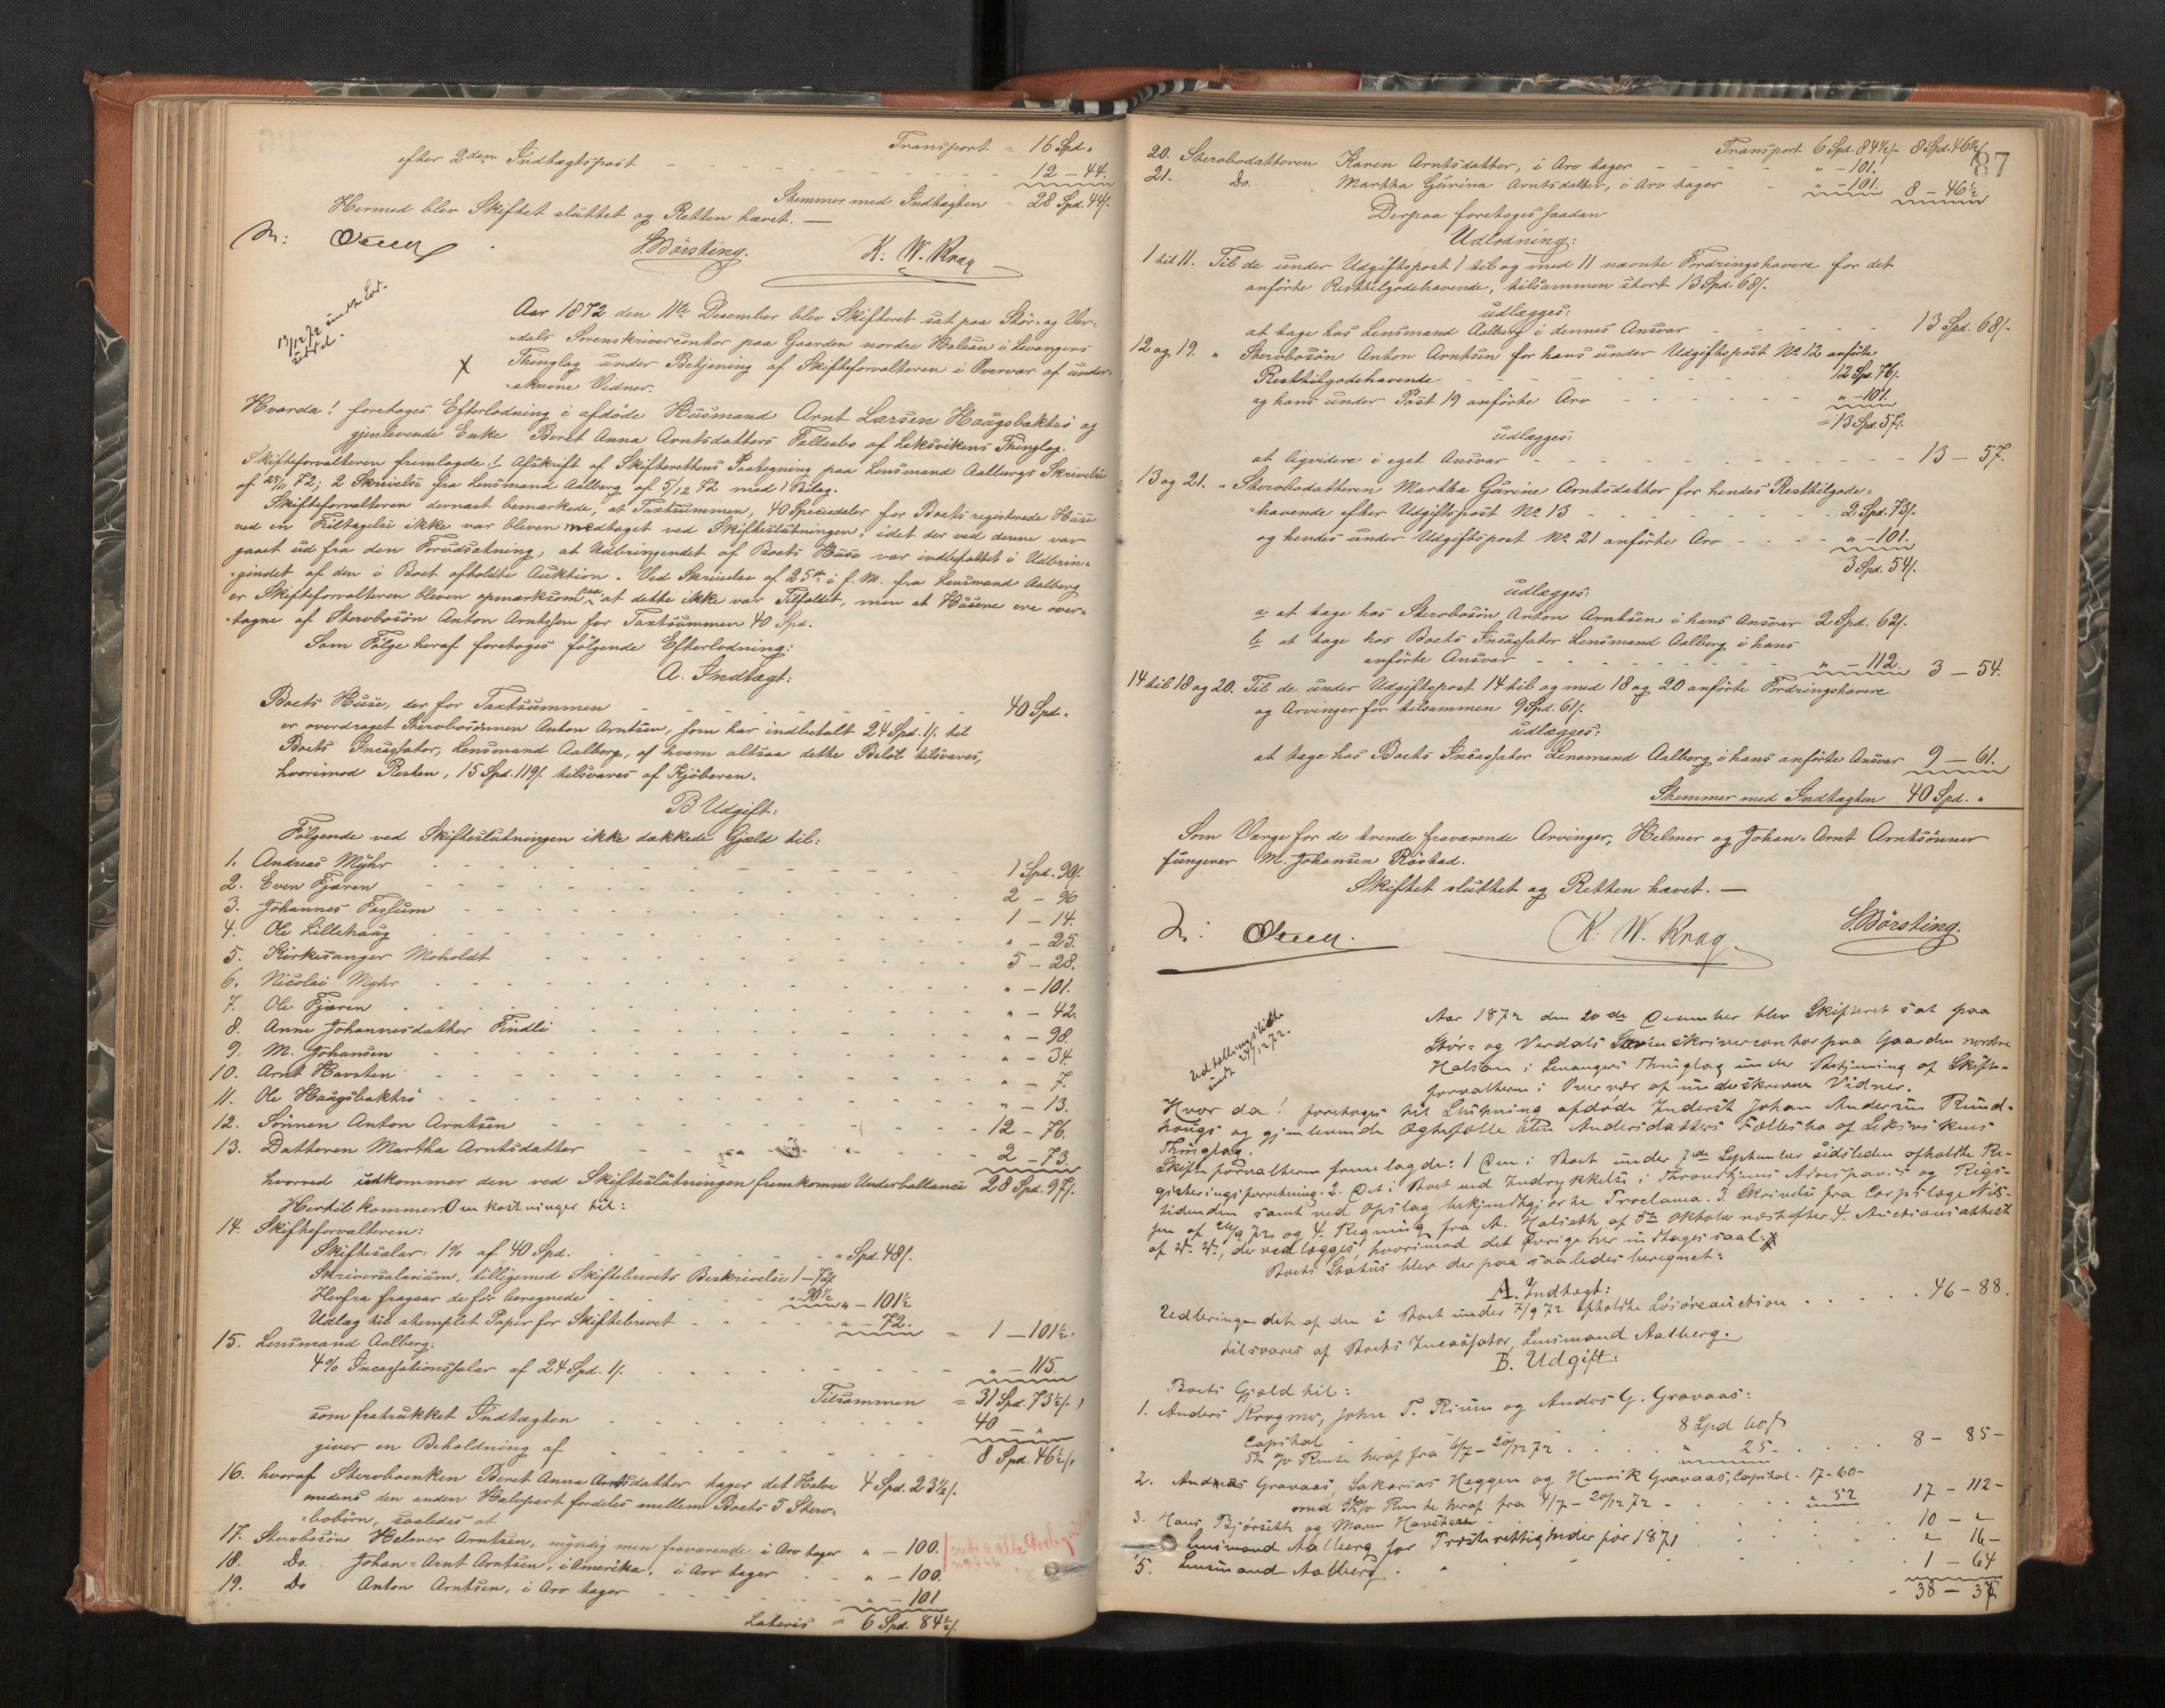 Transport = 16 Spd. "
efter 2den Indtægtspost - - - - - - - - 12 - 44.
Stemmer med Indtægten - 28 Spd. 44/.
Hermed blev Skiftet sluttet og Retten hævet. —
S. Børsting. K. W. Krag
Aar 1872 den 11te December blev Skifteret sat paa Stør- og Ver-
dals Sorenskrivercontor paa Gaarden nordre Halsan i Levangers
X Thinglag under Betjening af Skifteforvalteren i Overvær af under-
skrevne Vidner.
Hvorda! foretoges Efterlodning i afdøde Husmand Arnt Larsen Haugsbaktrø og
gjenlevende Enke Beret Anna Arntsdatters Fællesbo af Leksvikens Thinglag.
Skifteforvalteren fremlagde: 1, Afskrift af Skifterettens Paategning paa Lensmand Aalbergs Skrivelse
af 25/11 72; 2 Skrivelse fra Lensmand Aalberg af 5/12 72 med 1 Bilag.
Skifteforvalteren dernæst bemærkede, at Taxtsummen, 40 Speciedaler for Boets registrerede Huse
ved en Feiltagelse ikke var bleven medtaget ved Skifteslutningen, idet der ved denne var
gaaet ud fra den Forudsætning, at Udbringendet af Boets Huse var indbefattet i Udbrin-
gendet af den i Boet afholdte Auktion. Ved Skrivelse af 25de i f. M. fra Lensmand Aalberg
er Skifteforvalteren bleven opmærksom paa at dette ikke var Tilfældet, men at Husene ere over-
tagne af Stervbosøn Anton Arntsen for Taxtsummen 40 Spd.
Som Følge heraf foretoges følgende Efterlodning:
A. Indtægt:
Boets Huse, der for Taxtsummen - - - - - - 40 Spd. "
er overdraget Stervbosønnen Anton Arntsen, som har indbetalt 24 Spd. 1/. til
Boets Incassator, Lensmand Aalberg, af hvem altsaa dette Beløb tilsvares,
hvorimod Resten, 15 Spd. 119/. tilsvares af Kjøberen.
B. Udgift:
Følgende ved Skifteslutningen ikke dækkede Gjæld til:
1. Andreas Myhr - - - - 1 Spd. 90/.
2. Even Fjæren - - - - 2 - 96
3. Johannes Fassum - - - - 1 - 14.
4. Ole Lillehaug - - - - " - 25.
5. Kirkesanger Moholdt - - - - 5 - 28.
6. Nicolai Myhr - - - - " - 101.
7. Ole Fjæren - - - - " - 42.
8. Anne Johannesdatter Findli - - - - " - 98.
9. M. Johansen - - - - " - 34
10. Arnt Havsten - - - - " - 7.
11. Ole Haugsbaktrø - - - - " - 13.
12. Sønnen Anton Arntsen - - - - 12 - 76.
13. Datteren Martha Arntsdatter - - - - 2 - 73.
hvorved udkommer den ved Skifteslutningen fremkomne Underballance 28 Spd. 97/.
Hertil kommer Omkostninger til:
14. Skifteforvalteren:
Skiftesalær: 1% af 40 Spd. - - - - " Spd. 48/.
Skriversalarium, tilligemed Skiftebrevets Beskrivelse 1 - 72
Herfra fragaar de før beregnede - - " - 90½ " - 101½
Udlæg til stemplet Papir for Skiftebrevet - - " - 72. = 1 - 101½.
15. Lensmand Aalberg:
4% Incassationssalær af 24 Spd. 1/. - - - - " - 115.
Tilsammen = 31 Spd. 73½/.,
som fratrukket Indtægten - - - - 40 - "
giver en Beholdning af - - - - 8 Spd. 46½/.,
16. hvoraf Stervboenken Beret Anna Arntsdatter tager det Halve 4 Spd. 23½/.
medens den anden Halvpart fordeles mellem Boets 5 Sterv-
bobørn, saaledes at
17. Stervbosøn Helmer Arntsen, myndig men fraværende i Arv tager " - 100.
18. Do. Johan-Arnt Arntsen, i Amerika, i Arv tager " - 100.
19. Do Anton Arntsen, i Arv tager " - 101
Lateris = 6 Spd. 84½/.
87
Transport 6 Spd. 84½/. 8 Spd. 46½/.
20. Stervbodatteren Karen Arntsdatter, i Arv tager - - " - 101.
21. Do. Martha Gurina Arntsdatter, i Arv tager - " - 101. 8 - 46½
Derpaa foretoges saadan
Udlodning:
1 til 11. Til de under Udgiftspost 1 til og med 11 nævnte Fordringshavere for det
anførte Resttilgodehavende, tilsammen stort 13 Spd. 68/.
udlægges:
at tage hos Lensmand Aalberg i dennes Ansvar - - - - 13 Spd. 68/.
12 og 19. " Stervbosøn Anton Arntsen for hans under Udgiftspost No. 12 anførte
Resttilgodehavende - - - - 12 Spd. 76/.
og hans under Post 19 anførte Arv - - - - " - 101.
= 13 Spd. 57/.
udlægges:
at liqvidere i eget Ansvar - - - - 13 - 57.
13 og 21. " Stervbodatteren Martha Gurine Arntsdatter for hendes Resttilgode-
havende efter Udgiftspost No 13 - - - - 2 Spd. 73/.
og hendes under Udgiftspost No. 21 anførte Arv - - - - " - 101.
3 Spd. 54/.
udlægges:
a at tage hos Stervbosøn Anton Arntsen i hans Ansvar 2 Spd. 62/.
b at tage hos Boets Incassator Lensmand Aalberg i hans
anførte Ansvar - - - - " - 112. 3 - 54.
14 til 18 og 20. Til de under Udgiftspost 14 til og med 18 og 20 anførte Fordringshavere
og Arvinger for tilsammen 9 Spd. 61/.
udlægges:
at tage hos Boets Incassator Lensmand Aalberg i hans anførte Ansvar 9 - 61.
Stemmer med Indtægten 40 Spd. "
Som Værge for de tvende fraværende Arvinger, Helmer og Johan-Arnt Arntsønner
fungerer M. Johansen Røstad.
Skiftet sluttet og Retten hævet. —
K. W. Krag. S. Børsting.
Aar 1872 den 20de December blev Skifteret sat paa
Stør- og Verdals Sorenskrivercontor paa Gaarden nordre
Halsan i Levangers Thinglag under Betjening af Skifte-
forvalteren i Overvær af underskrevne Vidner.
Hvor da! foretoges til Slutning afdøde Inderst Johan Andersen Rund-
haugs og gjenlevende Ægtefælle Andersdatters Fællesbo af Leksvikens
Thinglag.
Skifteforvalteren fremlagde: 1 Den i Boet under 7de September sidstleden afholdte Re-
gisteringsforretning. 2. Det i Boet ved Indrykkelse i Throndhjems Adresseavis og Rigs-
tidenden samt ved Opslag bekjendtgjorte Proclama. 3. Skrivelse fra Corpslæge Nils-
sen af og 4. Regning fra A. Halseth af 5te Oktober næstefter. 4. Auctionsattest
af de vedlægges, hvorimod det Øvrige her indtages saal:
Boets Status blev der paa saaledes beregnet:
A. Indtægt:
Udbringendet af den i Boet under 7/9 72 afholdte Løsøreauction . . . . 46 - 88.
tilsvares af Boets Incassator, Lensmand Aalberg.
B. Udgift:
Boets Gjæld til:
1. Anders Krogmo, John T. Rium og Anders G. Gravaas:
Capital - - 8 Spd 60/
5% Rente heraf fra 6/7 - 20/12 72 . . . " 25 - . . . 8 - 85 -
2. Andreas Gravaas, Sakarias Heggen og Henrik Gravaas, Capital - 17 - 60 -
med Rente heraf fra 4/7 - 20/12 72 - . . . " 52 17 - 112 -
3. Hans Bjørseth og Havsteen . . . . 10 - "
Lensmand Aalberg for Presterettigheder for 1871 . . . " 16 -
5. Lensmand Aalberg . . . . 1 - 64
- 38 - 37